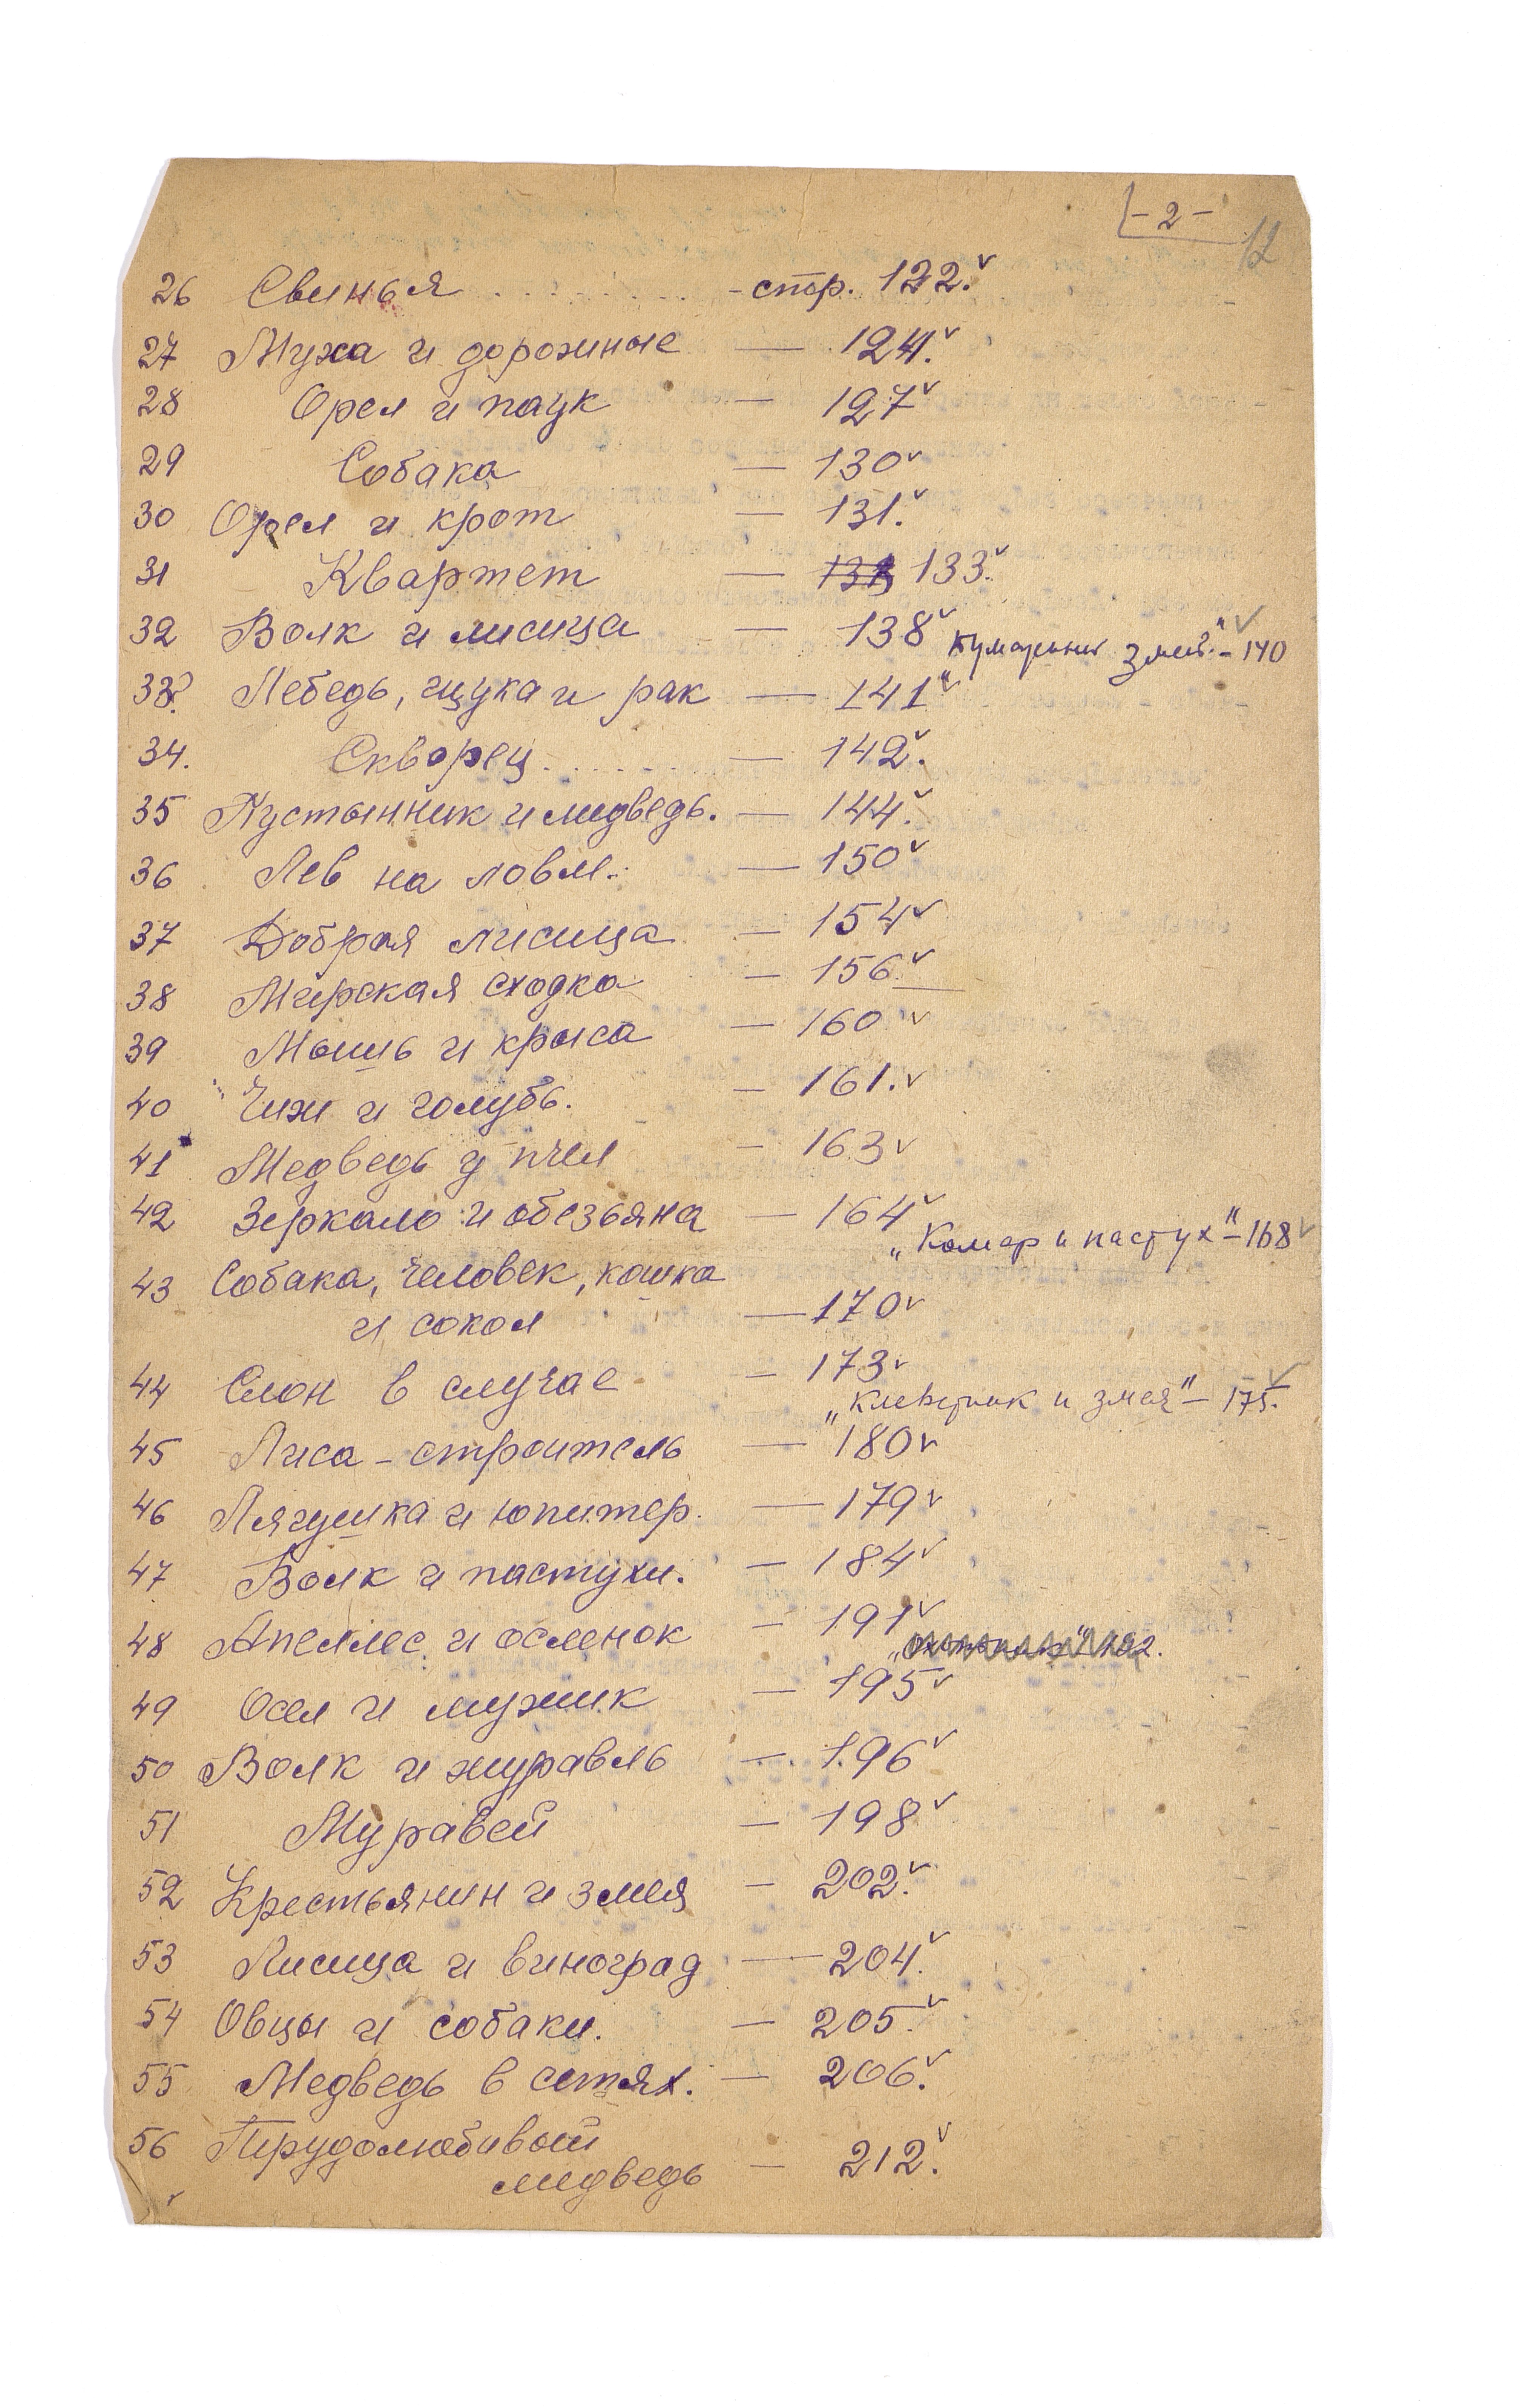 - 2 -
12
26 Свинья . . . . . . . . - стр. 122. ✓
27 Муха и дорожные — 124. ✓
28 Орел и паук — 127 ✓
29 Собака — 130 ✓
30 Орел и крот — 131. ✓
31 Квартет — 133 ✓
32 Волк и лисица — 138 ✓
змей" - 140 ✓
33. Лебедь, щука и рак — 141 ✓
34. Скворец . . . . . . — 142. ✓
35 Пустынник и медведь. — 144. ✓
36 Лев на ловле. — 150 ✓
37 Добрая лисица — 154 ✓
38 Мирская сходка — 156 ✓
39 Мышь и крыса — 160 ✓
40 Чиж и голубь. — 161. ✓
41 Медведь у пчел — 163 ✓
42 Зеркало и обезьяна — 164 ✓
„Комар и пастух" - 168 ✓
43 Собака, человек, кошка
и сокол — 170 ✓
44 Слон в случае — 173 ✓
„Клеветник и змея" - 175. ✓
45 Лиса - строитель — 180 ✓
46 Лягушка и юпитер. — 179 ✓
47 Волк и пастухи. — 184 ✓
48 Апеллес и осленок — 191 ✓
49 Осел и мужик — 195 ✓
50 Волк и журавль — 196 ✓
51 Муравей — 198 ✓
52 Крестьянин и змея — 202. ✓
53 Лисица и виноград — 204. ✓
54 Овцы и собаки. — 205. ✓
55 Медведь в сетях. — 206. ✓
56 Трудолюбивый
медведь — 212. ✓